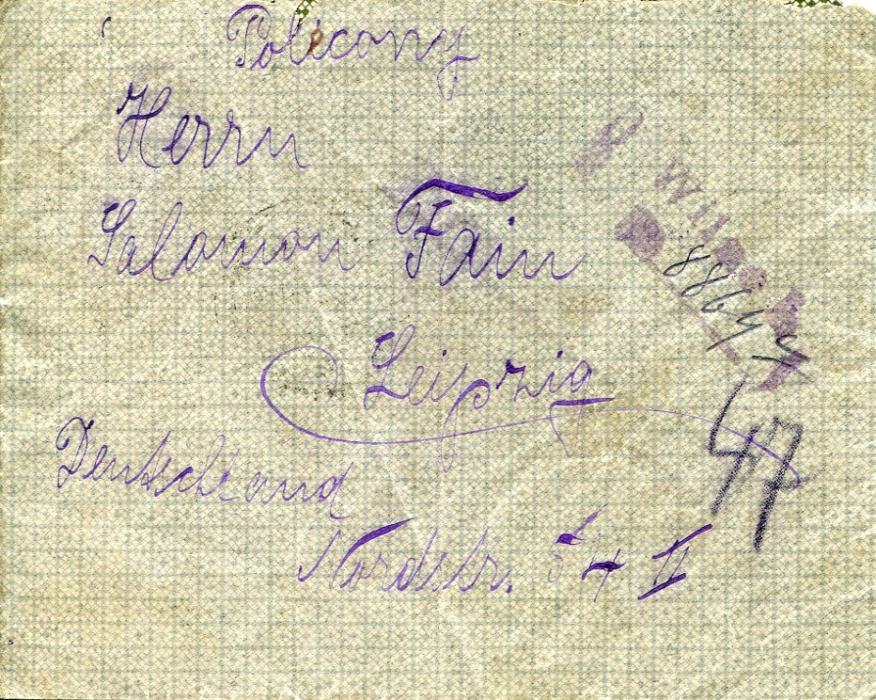 Polecony
Herrn
Salomon Fain
Leipzig
Deutschland
Nordstr. 54 II
47